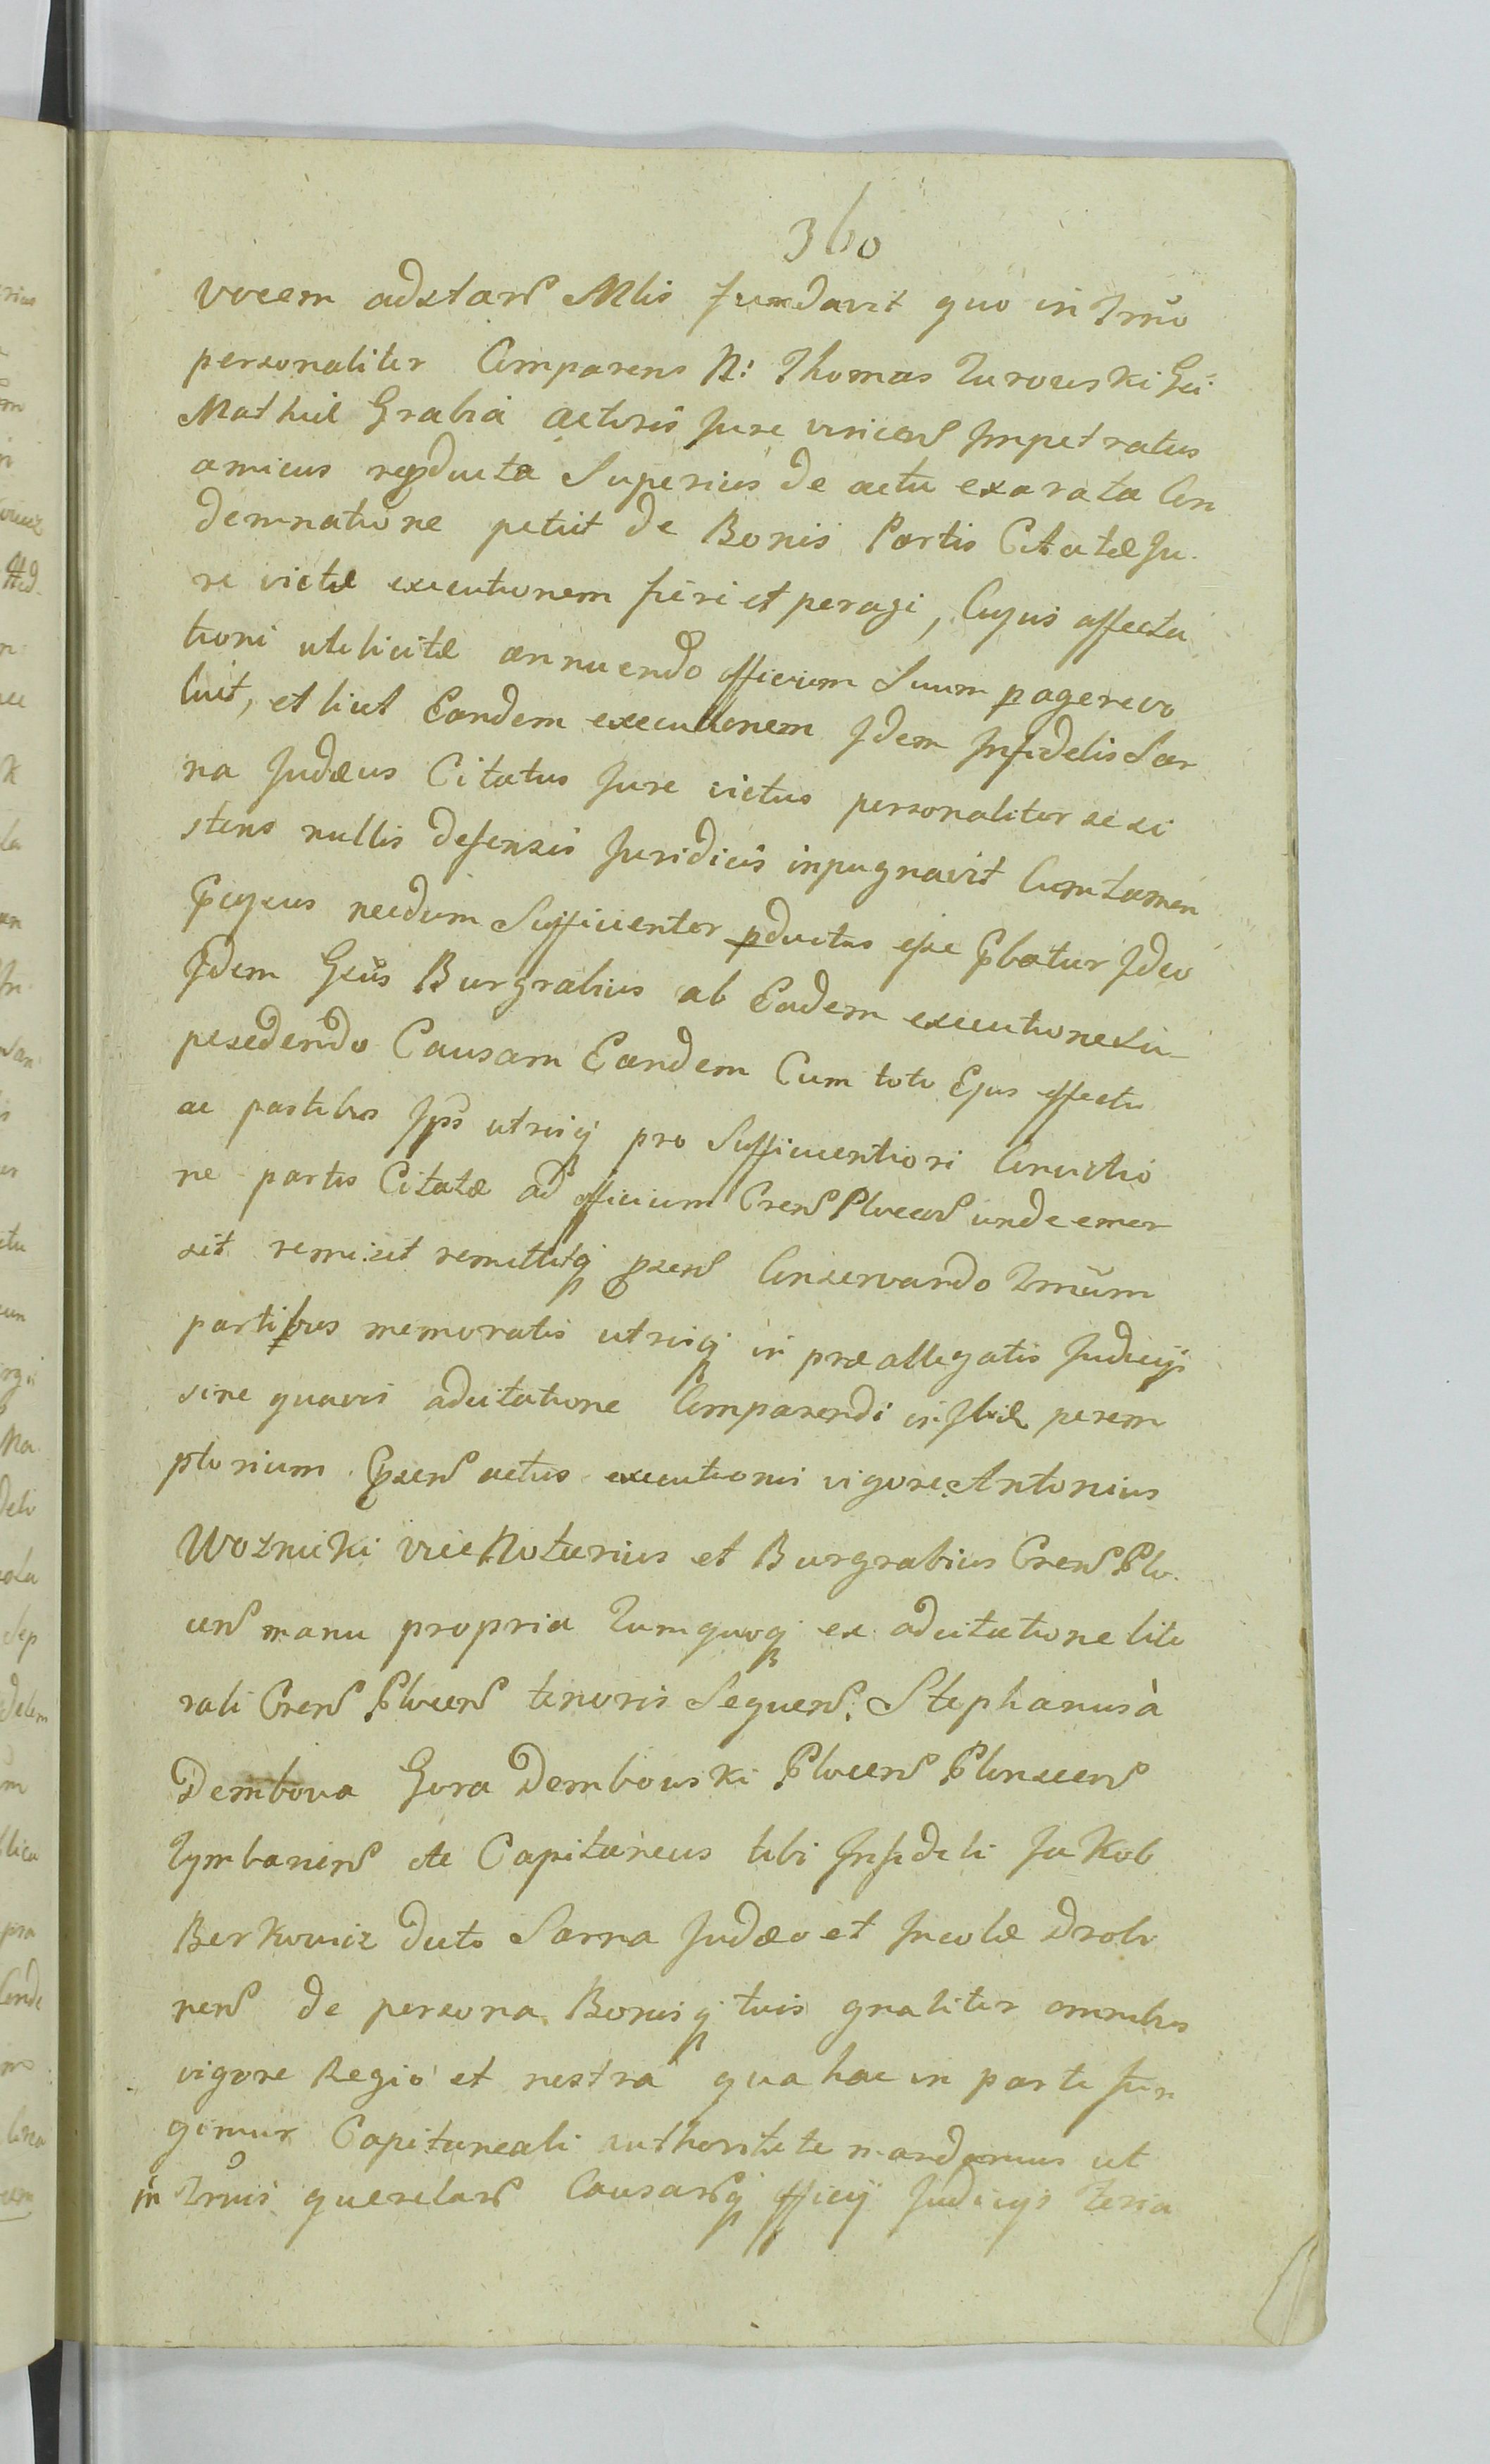 360
vocem adstan Mlis fundavit quo in Tmno
personaliter Comparens N: Thomas Turowski Gsi
Mathiæ Grabia actoris Jure vincen Impetratus
amicus reproducta Superius de actu exarata Con
demnatione petiit de Bonis Partis Citatæ Ju
re victæ executionem fieri et peragi, Cujus affecta
tioni uti licitæ annuendo officium Suum peragere vo
luit, et licet Eandem executionem Idem Infidelis Sar
na Judæus Citatus Jure victus personaliter se si
stens nullis defensis Juridicis inpugnavit Cum tamen
necdum Sufficienter productus esse Ideo
Idem Gsus Burgrabius ab Eadem executione su
persedendo Causam Eandem Cum toto Ejus effectu
ac partibus Ips utrisq pro Sufficientiori Convictio
ne partis Citatæ ad officium Cren Plocen unde emer
sit remisit remittitq psen Conservando Tmnum
partibus memoratis utrisq in præallegatis Judicijs
sine quavis adcitatione Comparendi perem
ptorium. psen actus executionis vigore. Antonius
Woznicki vice Notarius et Burgrabius Cren Plo
cen manu propria Tumquoq ex adcitatione lite
rali Cren Plocen tenoris Sequen. Stephanus à
Dembowa Gora Dembowski Plocen Plonscen
Tymbarien etc Capitaneus tibi Infideli Jakob
Berkowicz dicto Sarna Judæo et Incolæ Drobi
nen de persona Bonisq tuis gnaliter omnibus
vigore Regio et nostra qua hac in parte fun
gimur Capitaneali authoritate mandamus ut
in Tmis querelar Causarq officij Judicijs